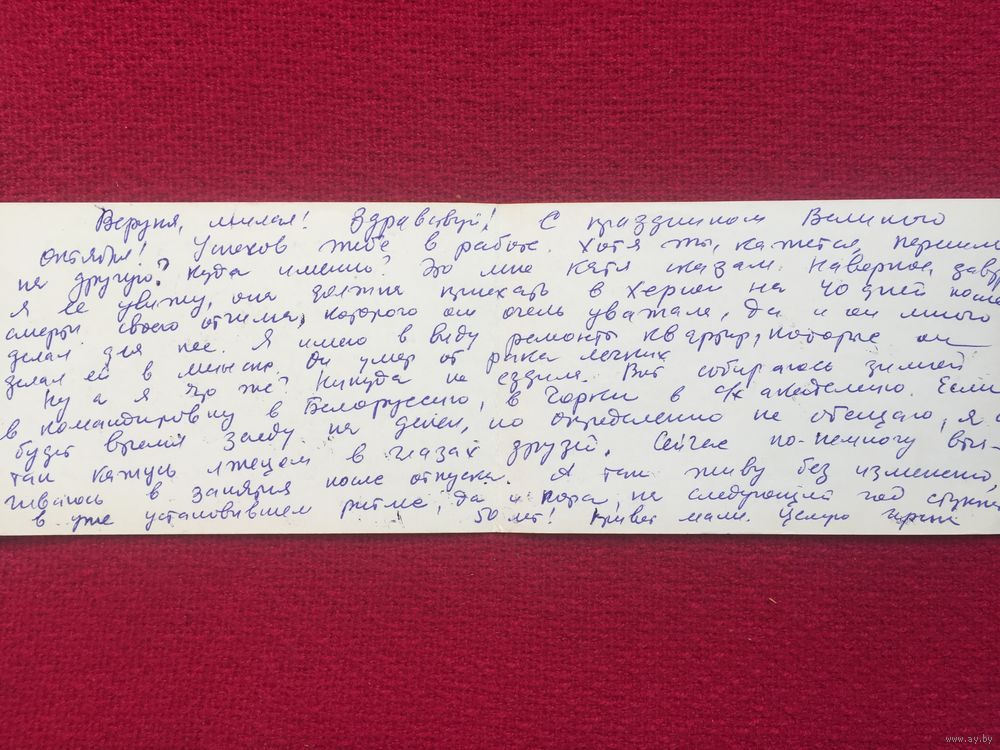 Веруня, милая! Здравствуй! С праздником Великого
Октября! Успехов тебе в работе. Хотя ты, кажется, перешла
на другую? Куда именно? Это мне Катя сказала. Наверное, завтра
я её увижу, она должна приехать в Херсон на 40 дней после
смерти своего отчима, которого он очень уважала, да и он много
делал для нее. Я имею в виду ремонты квартир, которые он
делал ей в Минске. Он умер от рака легких.
Ну а я что же? Никуда не ездила. Вот собираюсь зимой
в командировку в Белоруссию, в Горки в с/х академию. Если
будет время заеду на денек, но определенно не обещаю, я и
так кажусь лжецом в глазах друзей. Сейчас по-немногу втя-
гиваюсь в занятия после отпуска. А так живу без изменений,
в уже установившем ритме, да и пора, на следующий год стукнет
50 лет! Привет маме. Целую
www.ay.by